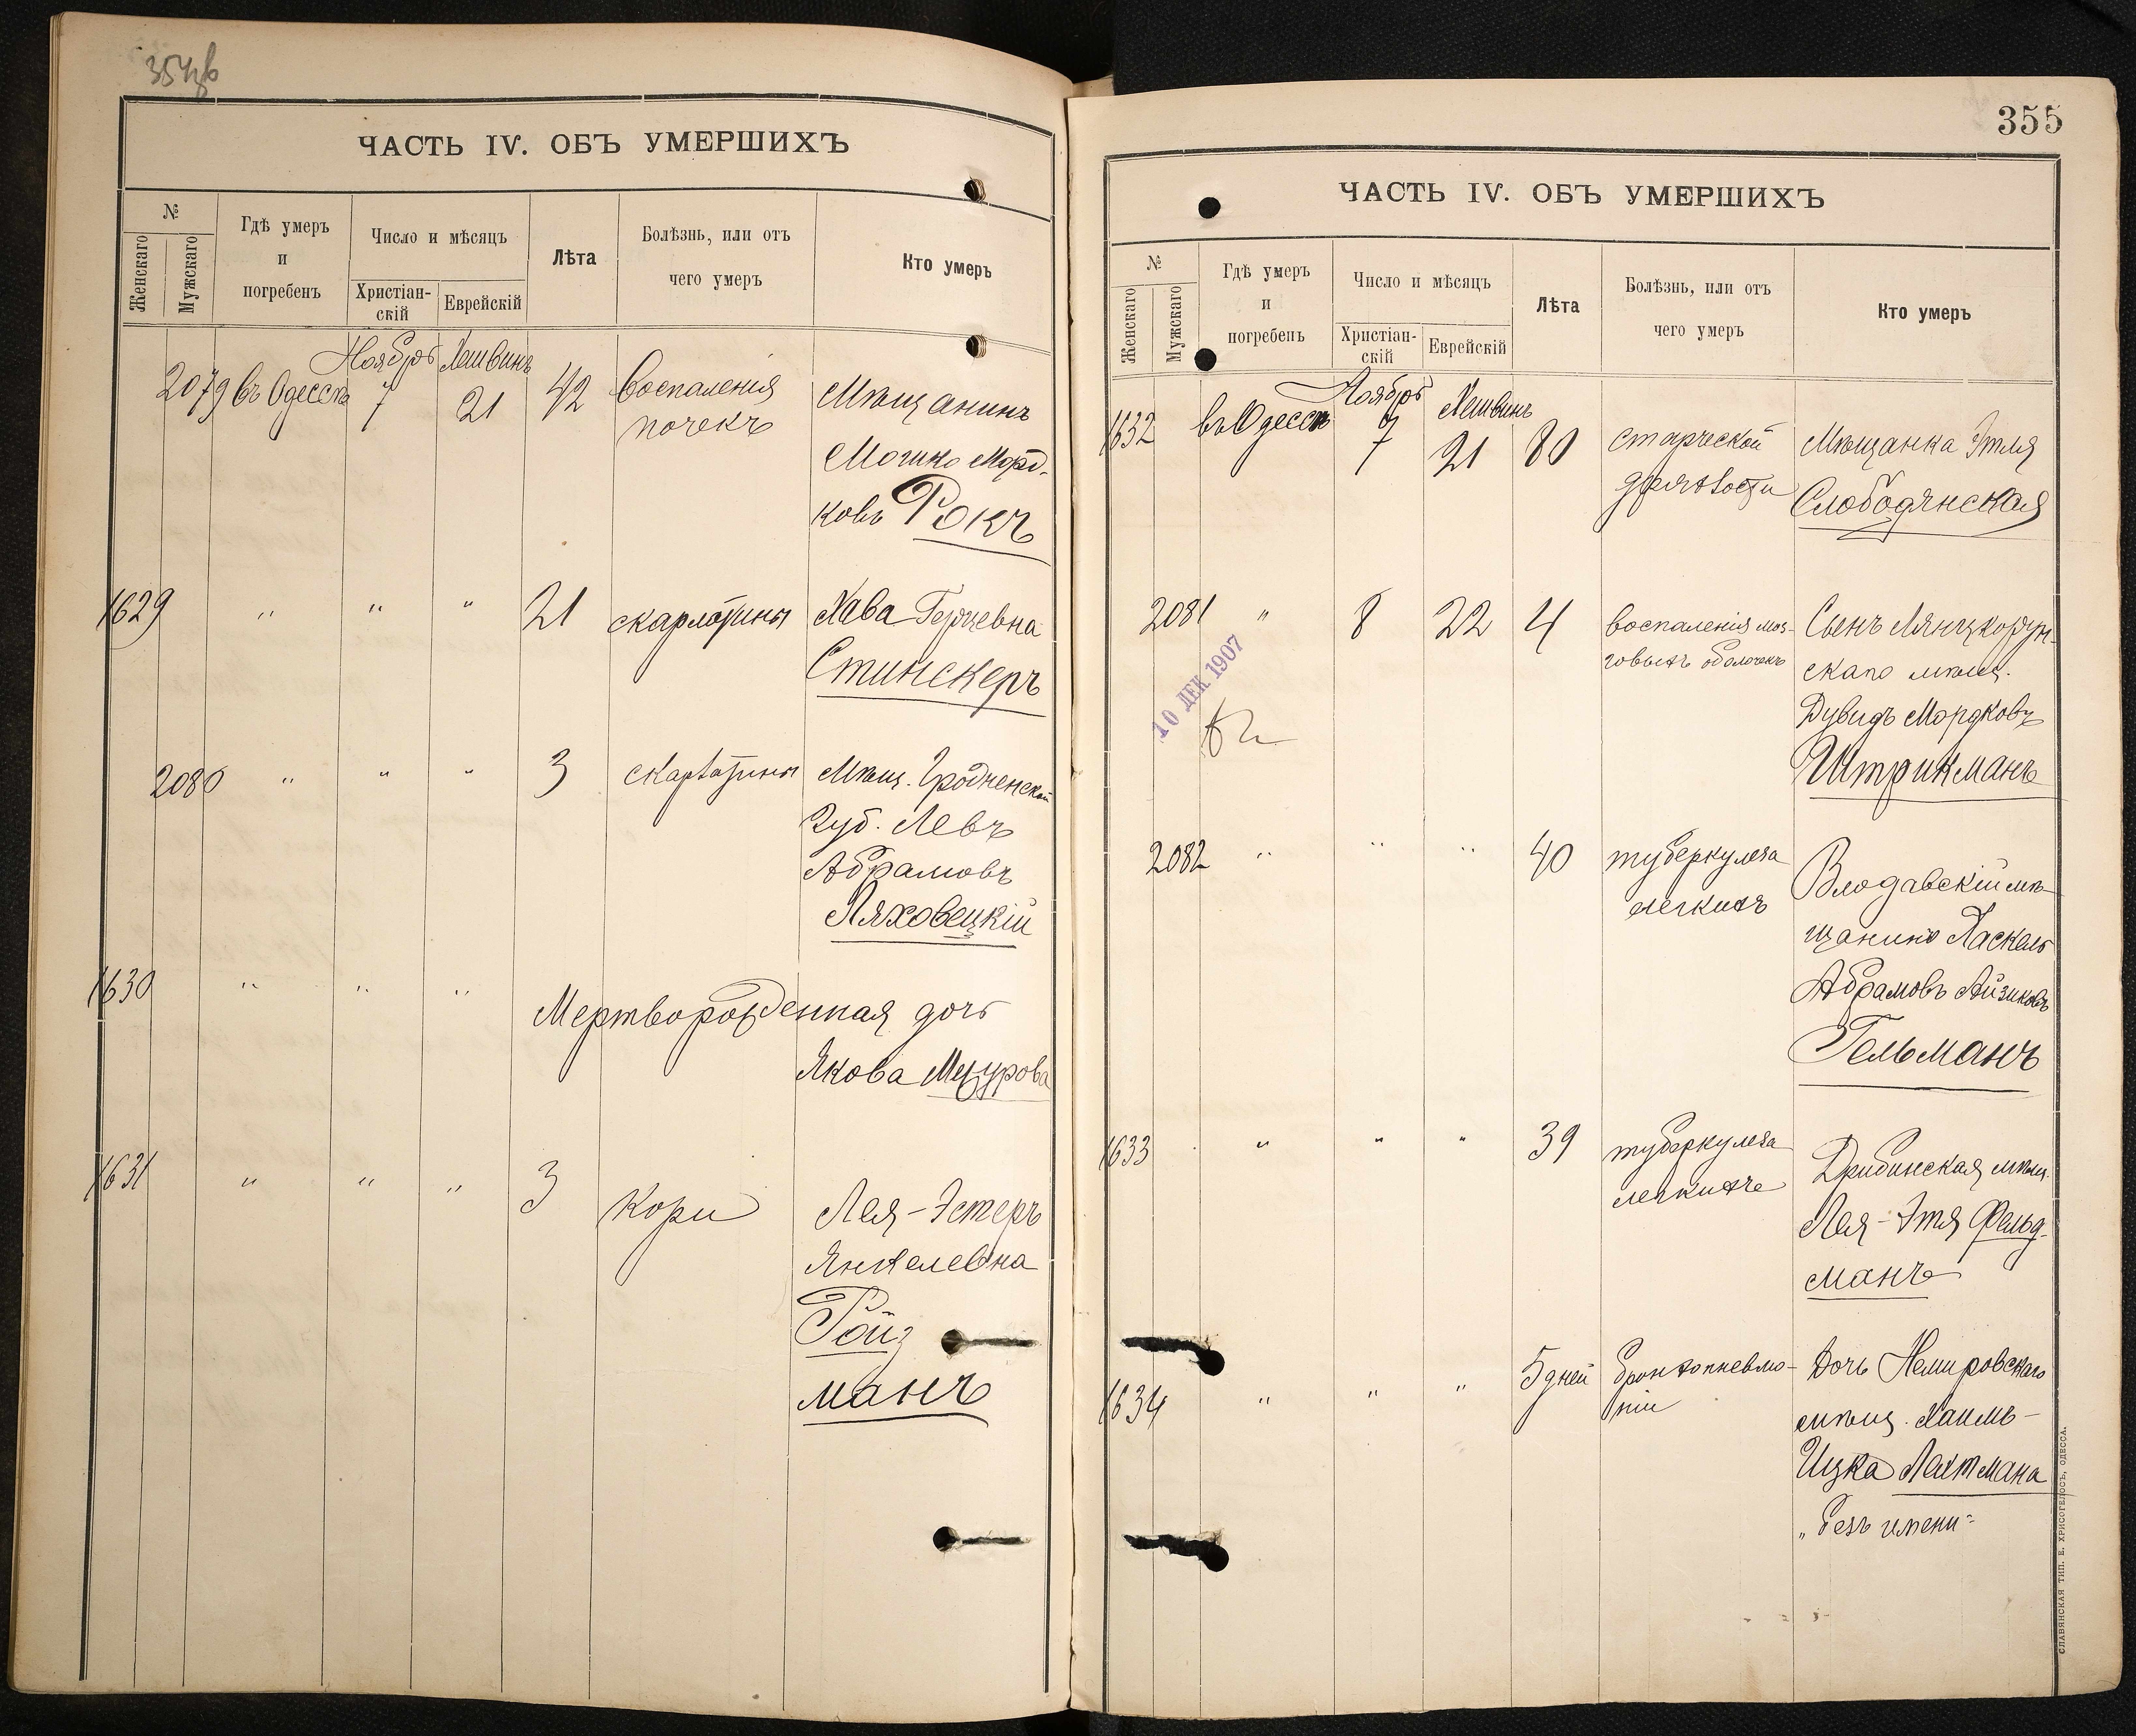 ЧАСТЬ IV. ОБЪ УМЕРШИХЪ
№
Женскаго
Мужскаго
Гдѣ умеръ
и
погребенъ
Число и мѣсяцъ
Христіан-
скій
Еврейскій
Лѣта
Болѣзнь, или отъ
чего умеръ
Кто умеръ
Ноябрь Хешвинъ
2079 въ Одессѣ 7 21 42 воспаленія
почекъ
Мѣщанинъ
Мошко Морд-
ковъ Рокъ
1629 " " " 21 скарлатины Хава Герцевна
Стинскеръ
2080 " " " 3 скарлатины Мѣщ. Гродненской
губ. Левъ
Абрамовъ
Ляховецкій
1630 " " "
Мертворожденная дочь
Якова
1631 " " " 3 Кори Лея-Эстеръ
Янкелевна
Ройз
манъ
355
ЧАСТЬ IV. ОБЪ УМЕРШИХЪ
№
Женскаго
Мужскаго
Гдѣ умеръ
и
погребенъ
Число и мѣсяцъ
Христіан-
скій
Еврейскій
Лѣта
Болѣзнь, или отъ
чего умеръ
Кто умеръ
Ноябрь Хешвинъ
1632 въ Одессѣ 7 21 80 старческой
дряхлости
Мѣщанка Этля
Слободянская
2081 " 8 22 4 воспаленія моз-
говыхъ оболочекъ
Сынъ Лянцкорун-
скаго мѣщ.
Дувидъ Мордковъ
Штрикманъ
10 ДЕК 1907
2082 " " " 40 туберкулеза
легкихъ
Влодавскій мѣ-
щанинъ Хаскель
Абрамовъ Айзиковъ
Гельманъ
1633 " " " 39 туберкулеза
легкихъ
Дрибинская мѣщ.
Лея-Этя Фельд-
манъ
1634 " " " 5 дней бронхопневмо-
ніи
Дочь Немировскаго
мѣщ. Хаимъ-
Ицка Лехтмана
„Безъ имени"
СЛАВЯНСКАЯ ТИП. Е. ХРИСОГЕЛОСЪ, ОДЕССА.